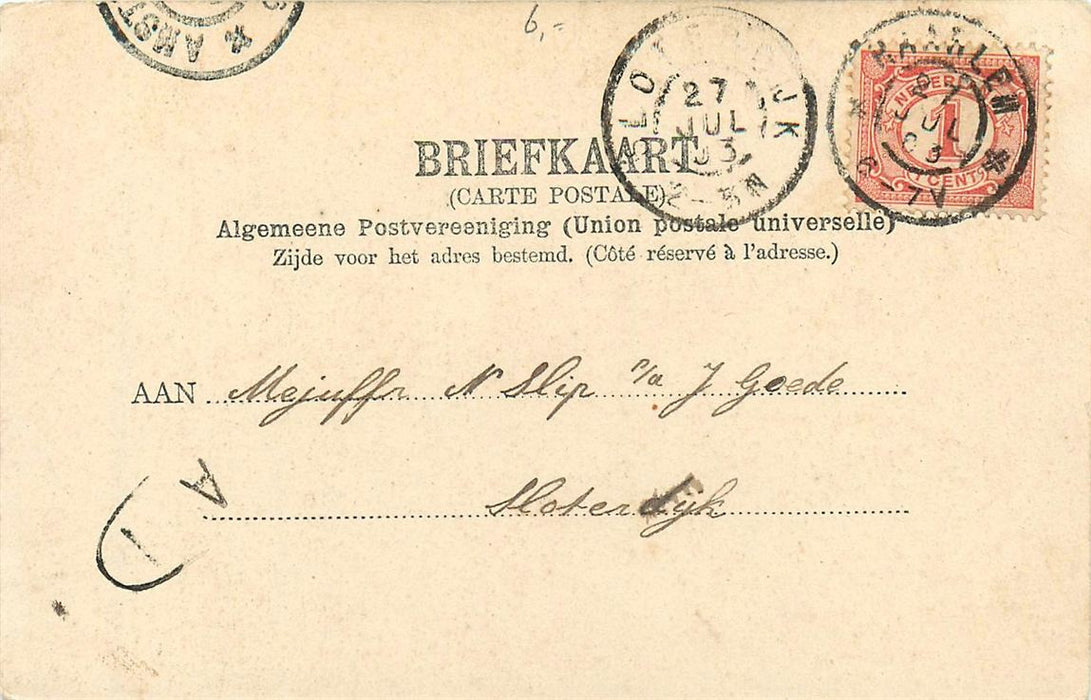 6,-
AMST
SLOTERDIJK
27
JUL
03
N
HAARLEM
27
JUL
03
6-7V
NEDERL
1
1 CENT
BRIEFKAART
(CARTE POSTALE)
Algemeene Postvereeniging (Union postale universelle)
Zijde voor het adres bestemd. (Côté réservé à l'adresse.)
AAN Mejuffr N Slip p/a J Goede
Sloterdijk
A
1